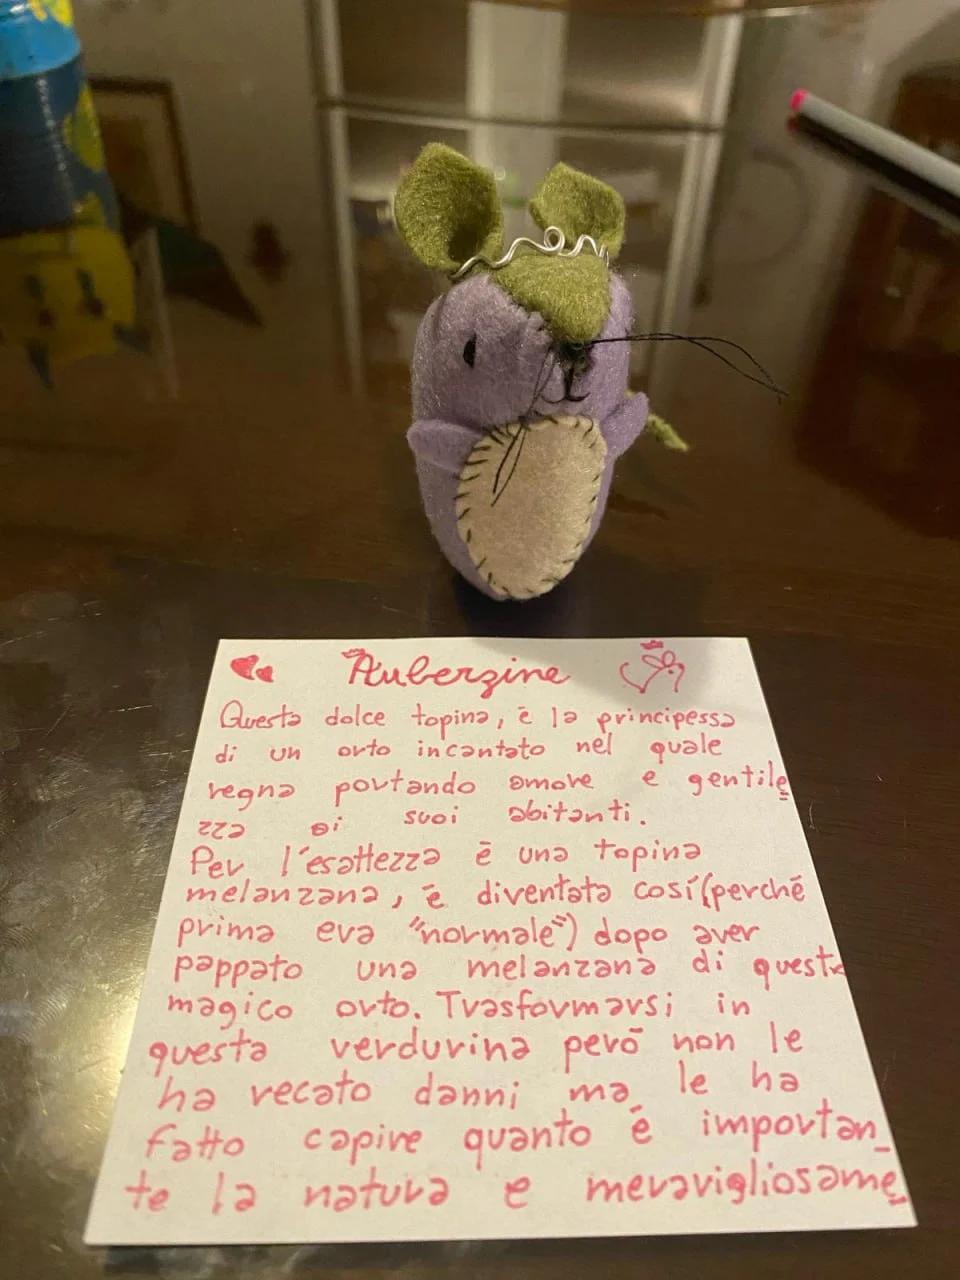 Auberzine
Questa dolce topina, è la principessa
di un orto incantato nel quale
regna portando amore e gentile
zza ai suoi abitanti.
Per l'esattezza è una topina
melanzana, è diventata così (perché
prima era "normale") dopo aver
pappato una melanzana di questo
magico orto. Trasformarsi in
questa verdurina però non le
ha recato danni ma le ha
fatto capire quanto è importan_
te la natura e meravigliosame_